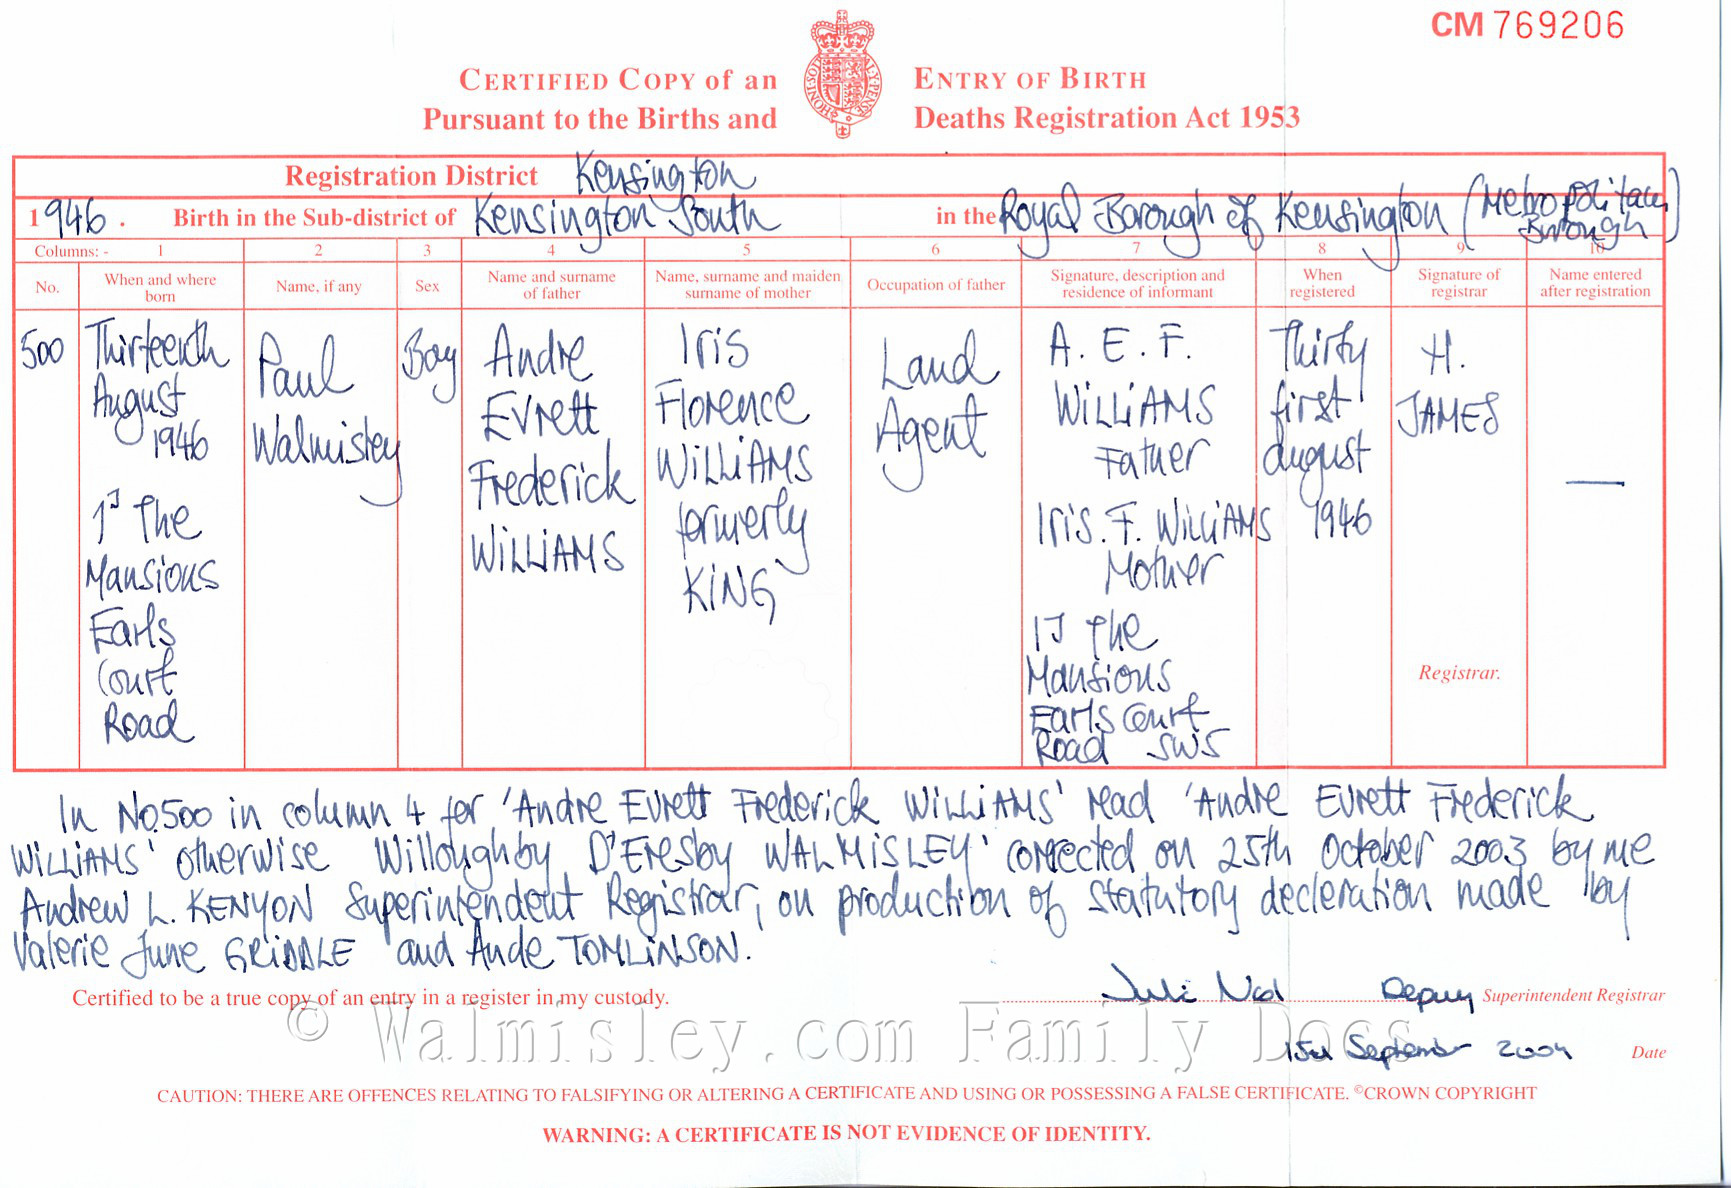 CM 769206
CERTIFIED COPY of an ENTRY OF BIRTH
Pursuant to the Births and Deaths Registration Act 1953
Registration District Kensington
1946. Birth in the Sub-district of Kensington South in the Royal Borough of Kensington (Metropolitan Borough)
Columns: - 1 2 3 4 5 6 7 8 9 10
No.
When and where
born
Name, if any
Sex
Name and surname
of father
Name, surname and maiden
surname of mother
Occupation of father
Signature, description and
residence of informant
When
registered
Signature of
registrar
Name entered
after registration
500
Thirteenth
August
1946
1J The
Mansions
Earls
Court
Road
Paul
Walmisley
Boy
Andre
Evrett
Frederick
WILLIAMS
Iris
Florence
WILLIAMS
formerly
KING
Land
Agent
A. E. F.
WILLIAMS
Father
Iris. F. WILLIAMS
Mother
1J The
Mansions
Earls Court
Road SW5
Thirty
first
august
1946
H.
JAMES
Registrar.
—
In No.500 in column 4 for 'Andre Evrett Frederick WILLIAMS' read 'Andre Evrett Frederick
WILLIAMS' otherwise Willoughby D'Eresby WALMISLEY' corrected on 25th October 2003 by me
Andrew L. KENYON Superintendent Registrar, on production of statutory decleration made by
Valerie June GRIDDLE and Aude TOMLINSON.
Certified to be a true copy of an entry in a register in my custody.
Deputy Superintendent Registrar
© Walmisley.com Family Docs
September 2004 Date
CAUTION: THERE ARE OFFENCES RELATING TO FALSIFYING OR ALTERING A CERTIFICATE AND USING OR POSSESSING A FALSE CERTIFICATE. ©CROWN COPYRIGHT
WARNING: A CERTIFICATE IS NOT EVIDENCE OF IDENTITY.